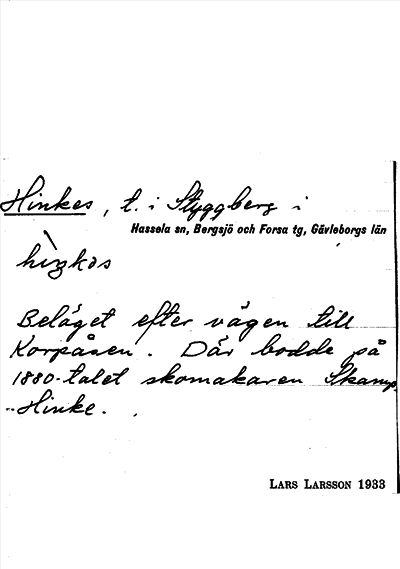 Hinkes, t. i Styggberg i
Hassela sn, Bergsjö och Forsa tg, Gävleborgs län
hiŋkǝs
Beläget efter vägen till
Korpåsen. Där bodde på
1880-talet skomakaren Skamp
-Hinke.
LARS LARSSON 1933